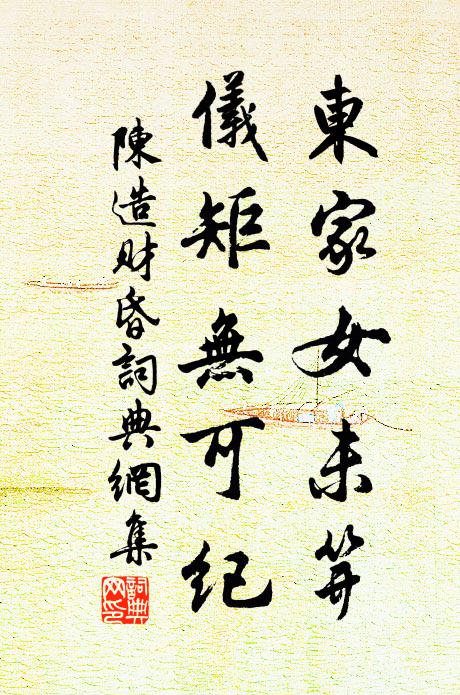 東家女未笄
儀矩無可紀
陳造財昏詞典網集
詞典網印